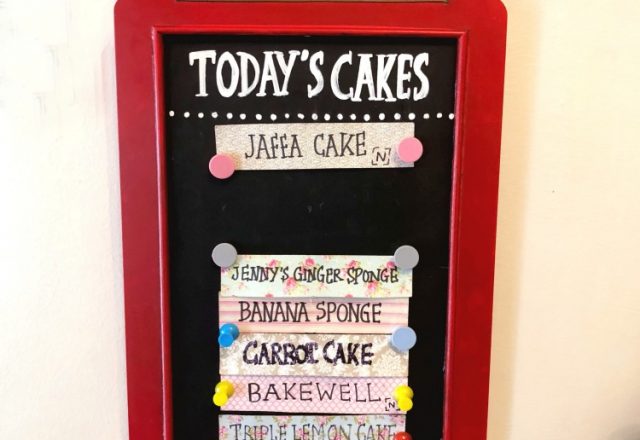 TODAY'S CAKES
JAFFA CAKE [N]
JENNY'S GINGER SPONGE
BANANA SPONGE
CARROT CAKE
BAKEWELL [N]
TRIPLE LEMON CAKE